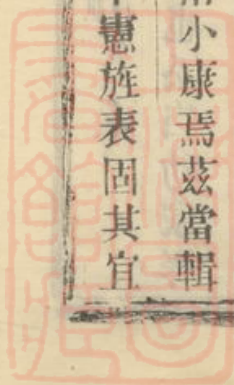 小康焉茲當輯
憲旌表固其宜